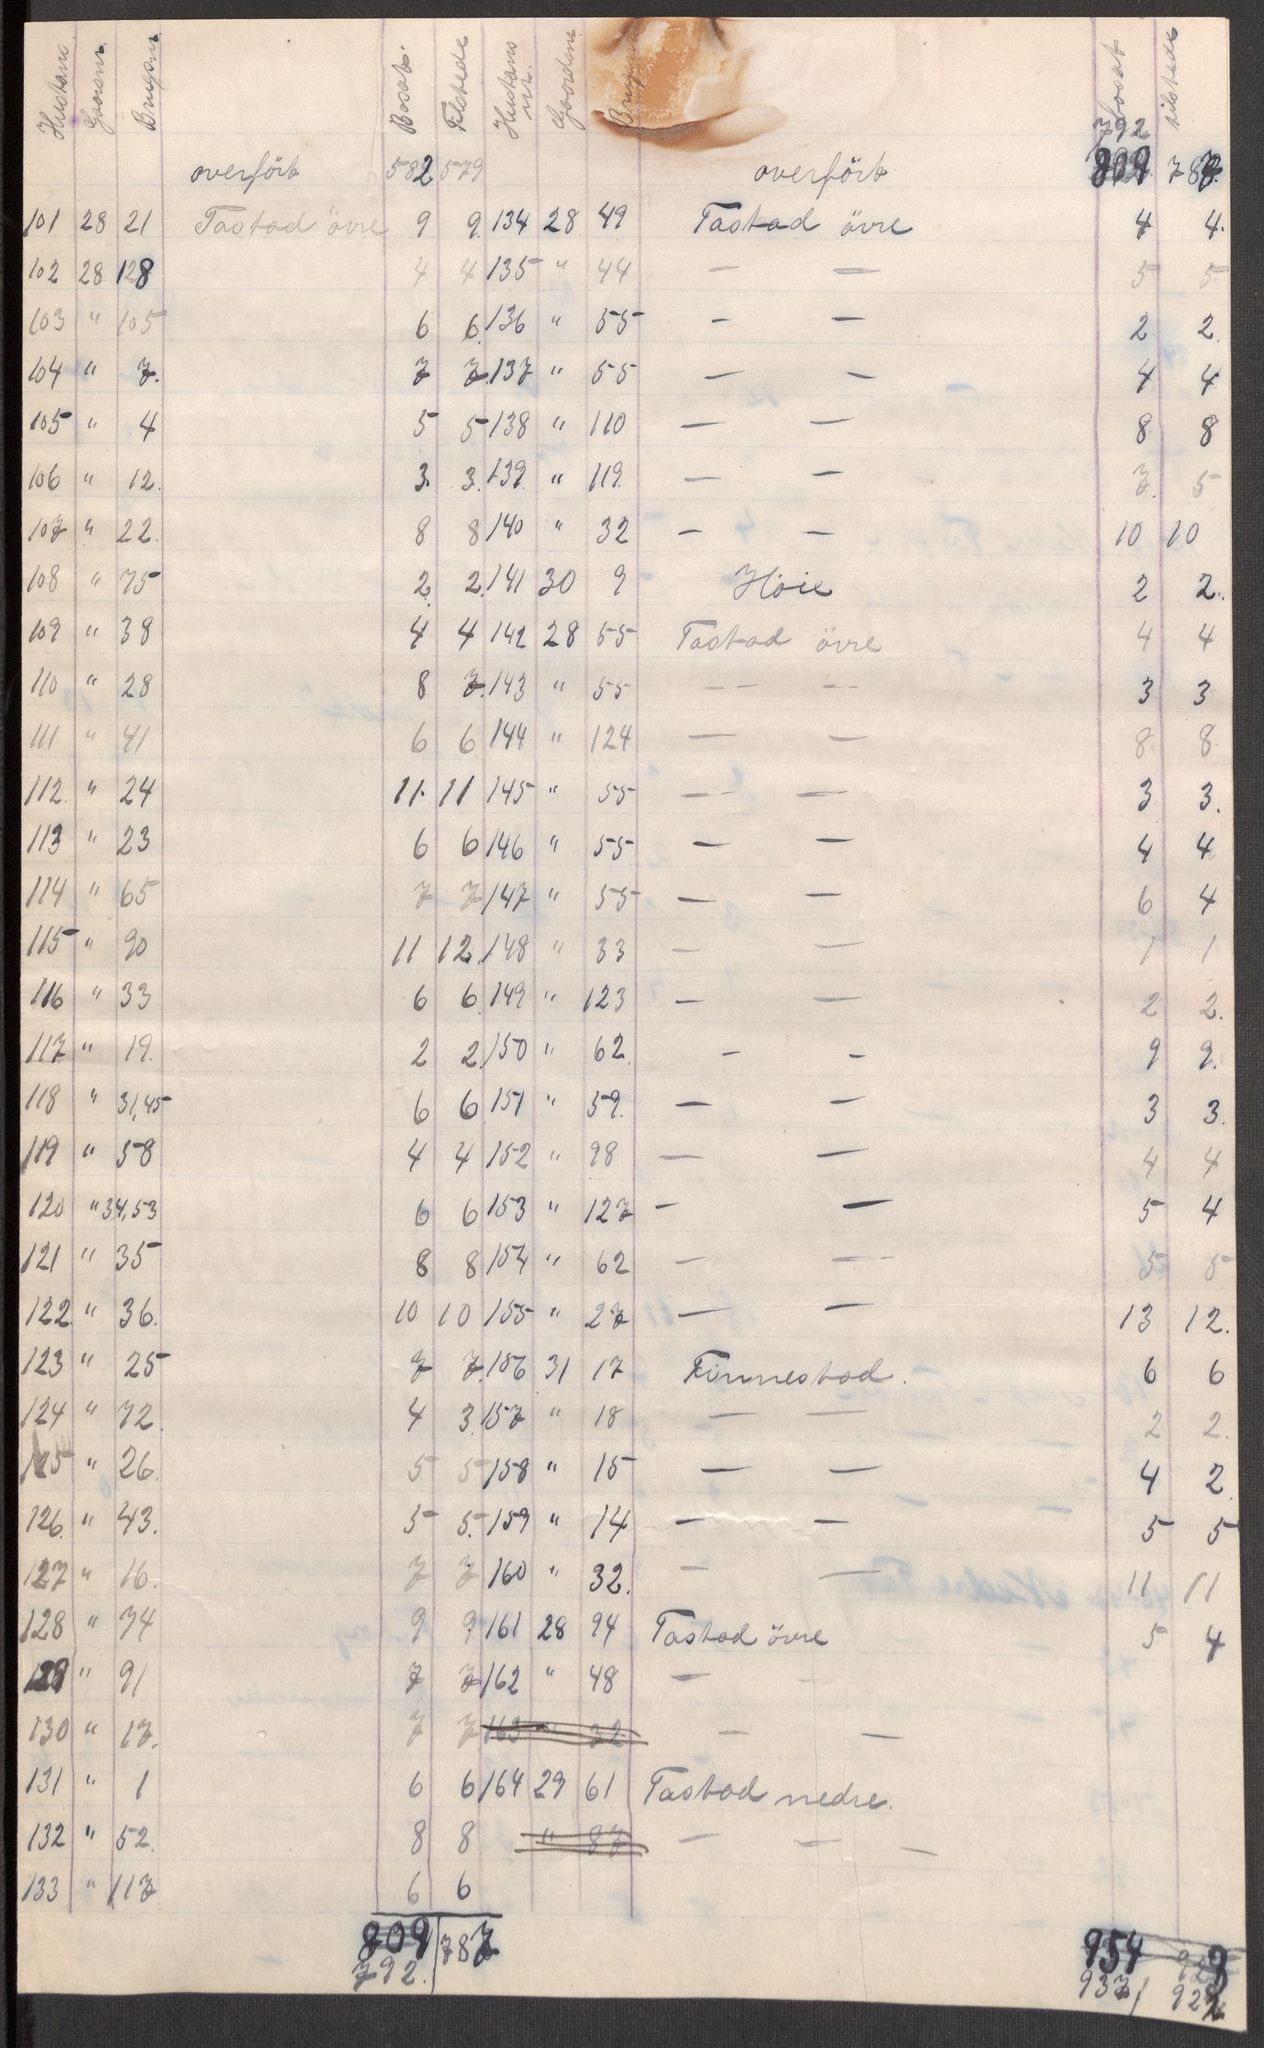 Hustans Gaardnr. Brugsnr. Bosat. Tilstede Hustans nr. Gaardnr. Bosat tilstede
792
overfört 582 579 overfört 809 787
101 28 21 Tastad övre 9 9. 134 28 49 Tastad övre 4 4.
102 28 128 4 4 135 " 44 — — 5 5
103 " 105 6 6. 136 " 55 — — 2 2.
104 " 7. 7 7. 137 " 55 — — 4 4
105 " 4 5 5 138 " 110 — — 8 8
106 " 12. 3. 3. 139. " 119. — — 7. 5
107 " 22. 8 8 140 " 32 — — 10 10
108 " 75 2. 2. 141 30 9 Höie 2 2.
109 " 38 4 4 142 28 55 Tastad övre 4 4
110 " 28 8 7. 143 " 55 — — 3 3
111 " 41 6 6 144 " 124 — — 8 8
112. " 24 11. 11 145 " 55 — — 3 3.
113 " 23 6 6 146 " 55 — — 4 4
114 " 65 7 7 147 " 55 — — 6 4
115 " 90 11 12. 148 " 33 — — 1 1
116 " 33 6 6. 149 " 123 — — 2 2.
117 " 19. 2 2. 150 " 62. — — 9 9.
118 " 31,45 6 6 151 " 59. — — 3 3.
119 " 58 4 4 152 " 98 — — 4 4
120 " 34,53 6 6 153 " 127 — — 5 4
121 " 35 8 8 154 " 62 — — 5 5
122 " 36. 10 10 155 " 27 — — 13 12.
123 " 25 7 7. 156 31 17 Finnestad. 6 6
124 " 72. 4 3. 157 " 18 — — 2 2.
125 " 26. 5 5 158 " 15 — — 4 2.
126. " 43. 5 5. 159 " 14 — — 5 5
127 " 16. 7 7 160 " 32. — — 11 11
128 " 74 9 9 161 28 94 Tastad övre 5 4
129 " 91 7 7 162 " 48 — —
130 " 17. 7 7 163 " 32 — —
131 " 1 6 6 164 29 61 Tastad nedre.
132 " 52. 8 8 " 87 — — —
133 " 117 6 6
809 787 954
792. 937